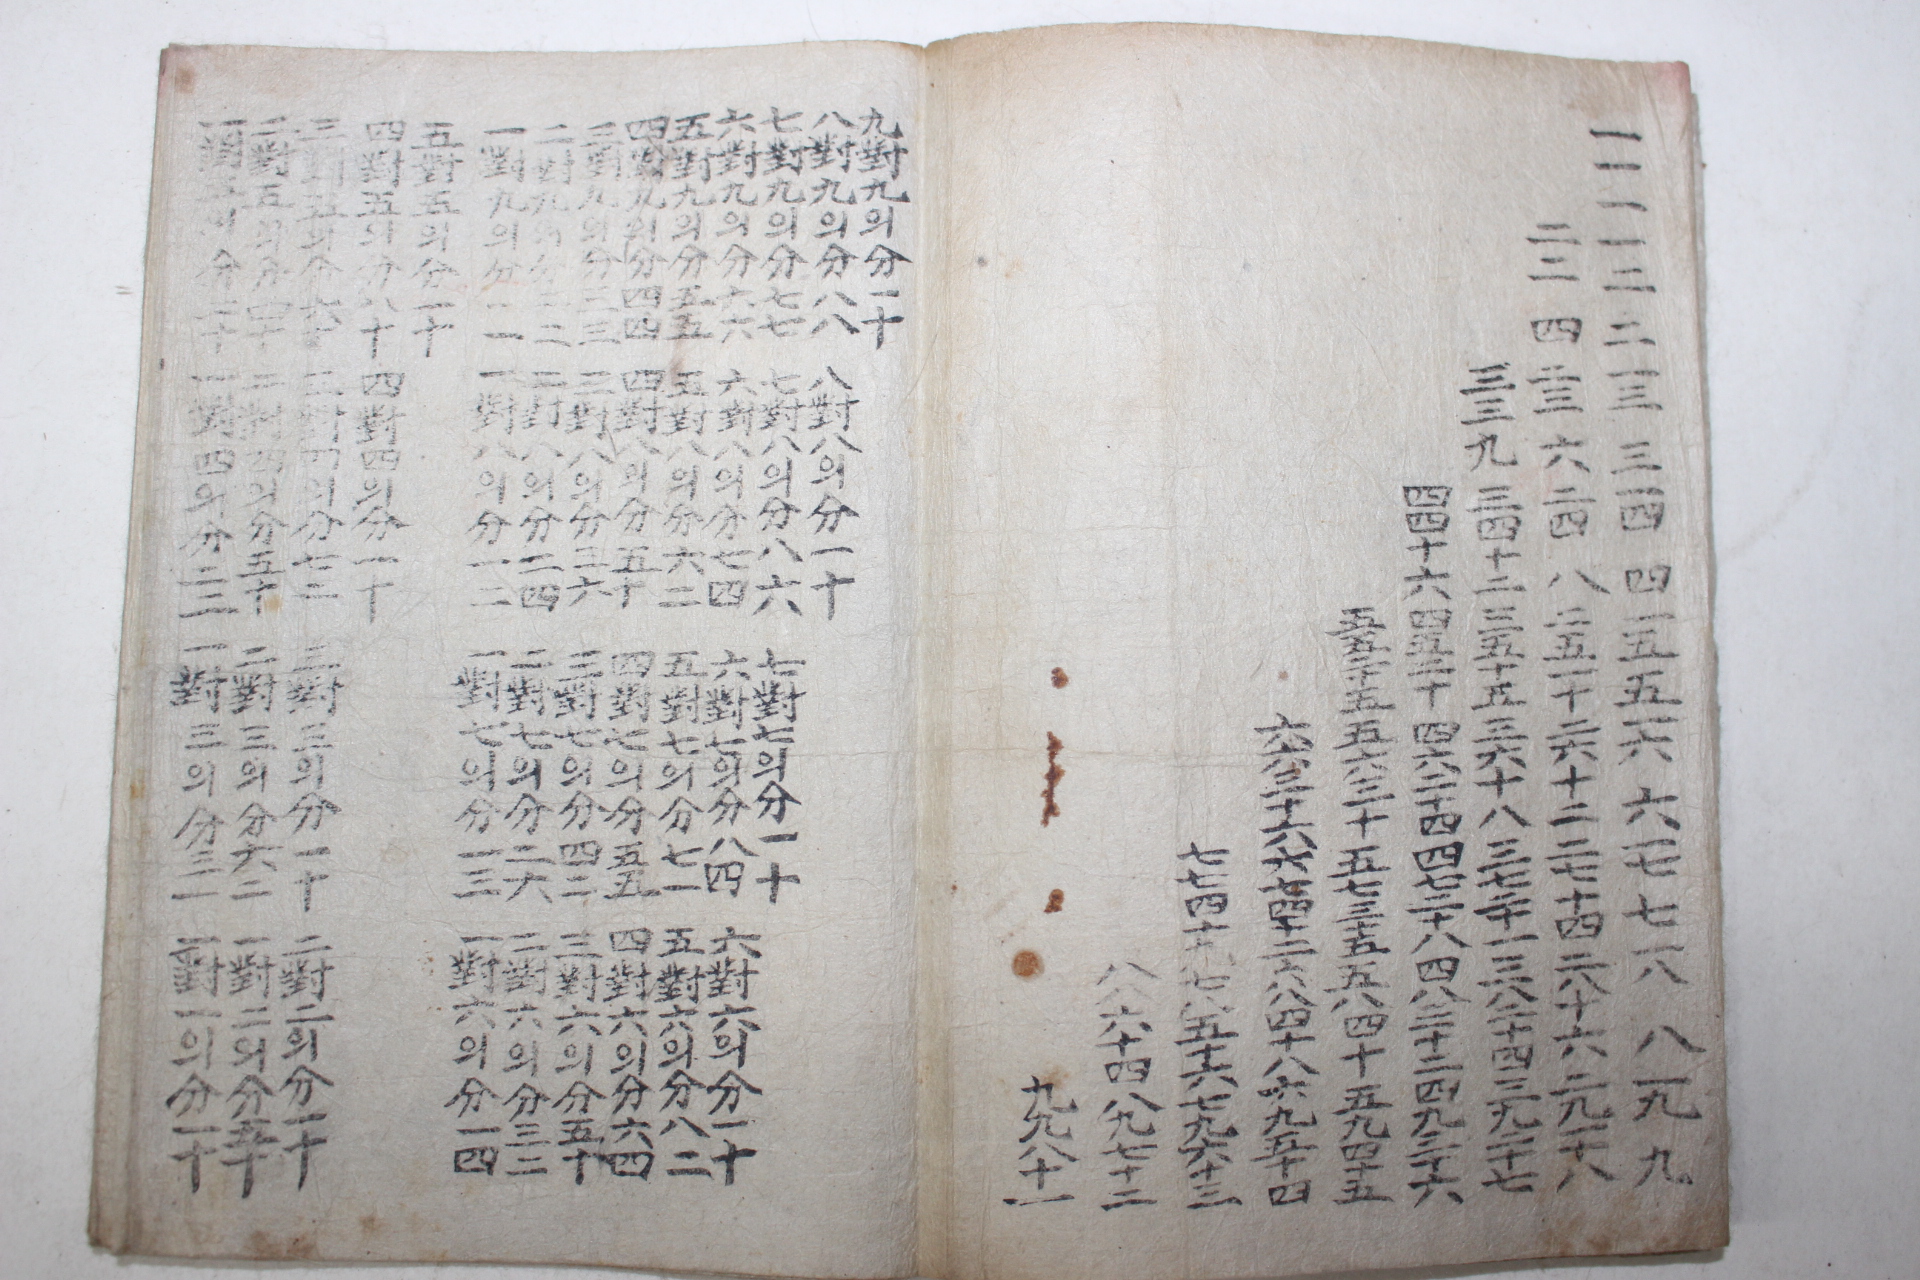 一一一一二二一三三一四四一五五一六六一七七一八八一九九
二二四二三六二四八二五一十二六十二二七十四二八十六二九十八
三三九三四十二三五十五三六十八三七二十一三八二十四三九二十七
四四十六四五二十四六二十四四七二十八四八三十二四九三十六
五五二十五五六三十五七三十五五八四十五九四十五
六六三十六六七四十二六八四十八六九五十四
七七四十九七八五十六七九六十三
八八六十四八九七十二
九九八十一
九對九의分一十
八對九의分八八
七對九의分七七
六對九의分六六
五對九의分五五
四對九의分四四
三對九의分三三
二對九의分二二
一對九의分一一
八對八의分一十
七對八의分八六
六對八의分七四
五對八의分六二
四對八의分五十
三對八의分三六
二對八의分二四
一對八의分一二
七對七의分一十
六對七의分八四
五對七의分七一
四對七의分五五
三對七의分四二
二對七의分二六
一對七의分一三
六對六의分一十
五對六의分八二
四對六의分六四
三對六의分五十
二對六의分三二
一對六의分一四
五對五의分一十
四對五의分八十
三對五의分六十
二對五의分四十
一對五의分二十
四對四의分一十
三對四의分七二
二對四의分五十
一對四의分二二
三對三의分一十
二對三의分六二
一對三의分三一
二對二의分一十
一對二의分五十
一對一의分一十